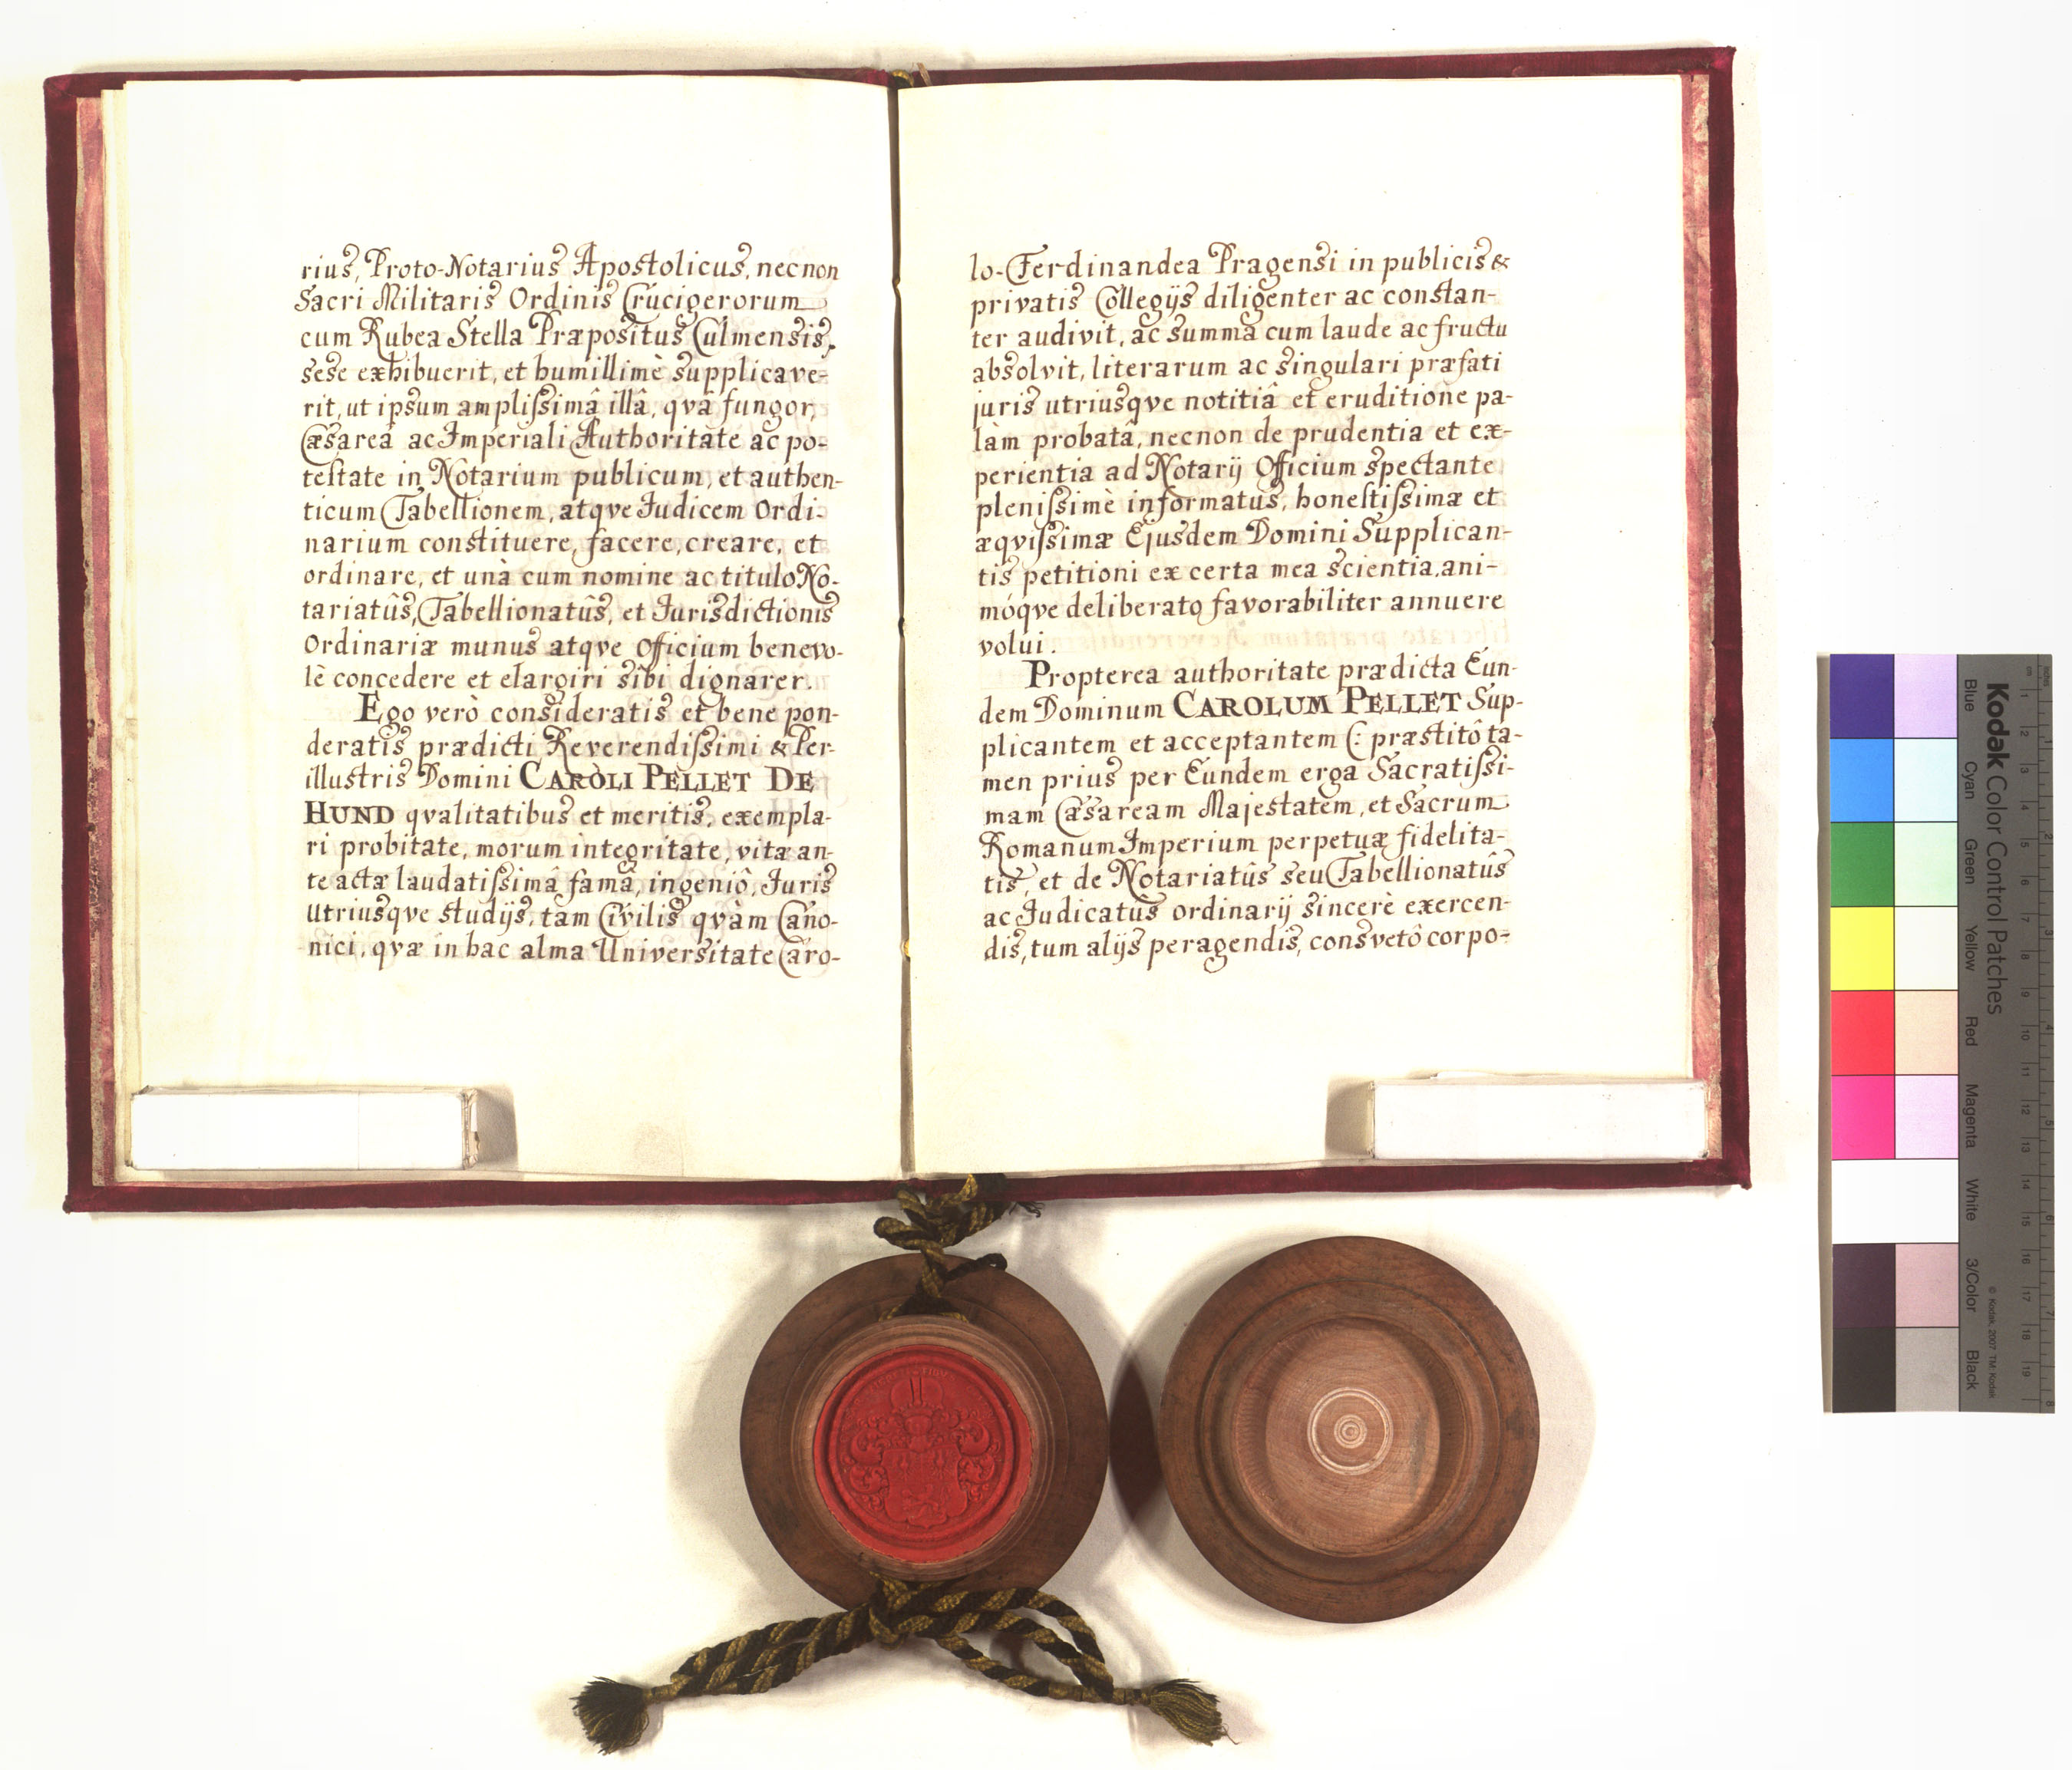 rius, Proto-Notarius Apostolicus, necnon
Sacri Militaris Ordinis Crucigerorum
cum Rubea Stella Præpositus Culmensis,
sese exhibuerit, et humillimè supplicave-
rit, ut ipsum amplißimâ illâ, qvâ fungor,
Cæsareâ ac Imperiali Authoritate ac po-
testate in Notarium publicum, et authen-
ticum Tabellionem, atqve Iudicem Ordi-
narium constituere, facere, creare, et
ordinare, et unà cum nomine ac titulo No-
tariatûs, Tabellionatûs, et Iurisdictionis
Ordinariæ munus atqve Officium benevo-
lè concedere et elargiri sibi dignarer.
Ego verò consideratis et bene pon-
deratis prædicti Reverendißimi & Per-
illustris Domini CAROLI PELLET DE
HUND qvalitatibus et meritis, exempla-
ri probitate, morum integritate, vitæ an-
te actæ laudatißimâ famâ, ingeniô, Iuris
Utriusqve studijs, tam Civilis qvàm Cano-
nici, qvæ in hac alma Universitate Caro-
lo-Ferdinandea Pragensi in publicis &
privatis Collegijs diligenter ac constan-
ter audivit, ac summa cum laude ac fructu
absolvit, literarum ac singulari præfati
juris utriusqve notitiâ et eruditione pa-
làm probatâ, necnon de prudentia et ex-
perientia ad Notarij Officium spectante
plenißimè informatus, honestißimæ et
æqvißimæ Ejusdem Domini Supplican-
tis petitioni ex certa mea scientia, ani-
móqve deliberato favorabiliter annuere
volui.
Propterea authoritate prædicta Eun-
dem Dominum CAROLUM PELLET Sup-
plicantem et acceptantem (: præstitô ta-
men prius per Eundem erga Sacratißi-
mam Cæsaream Majestatem, et Sacrum
Romanum Imperium perpetuæ fidelita-
tis, et de Notariatûs seu Tabellionatûs
ac Iudicatus ordinarij sincerè exercen-
dis, tum alijs peragendis, consvetô corpo-
Kodak Color Control Patches
Blue
Cyan
Green
Yellow
Red
Magenta
White
3/Color
Black
© Kodak, 2007 TM: Kodak